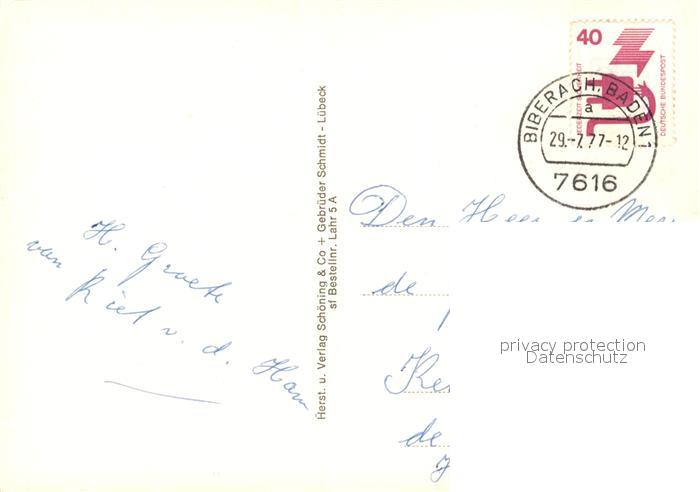 H. Groete
van
Riet v. d. Ham
Herst. u. Verlag Schöning & Co + Gebrüder Schmidt - Lübeck
sf Bestellnr. Lahr 5 A
40
JEDERZEIT SICHERHEIT
DEUTSCHE BUNDESPOST
BIBERACH, BADEN 1
a
29.-7.77-12
7616
Den Heer en
de
de
privacy protection
Datenschutz